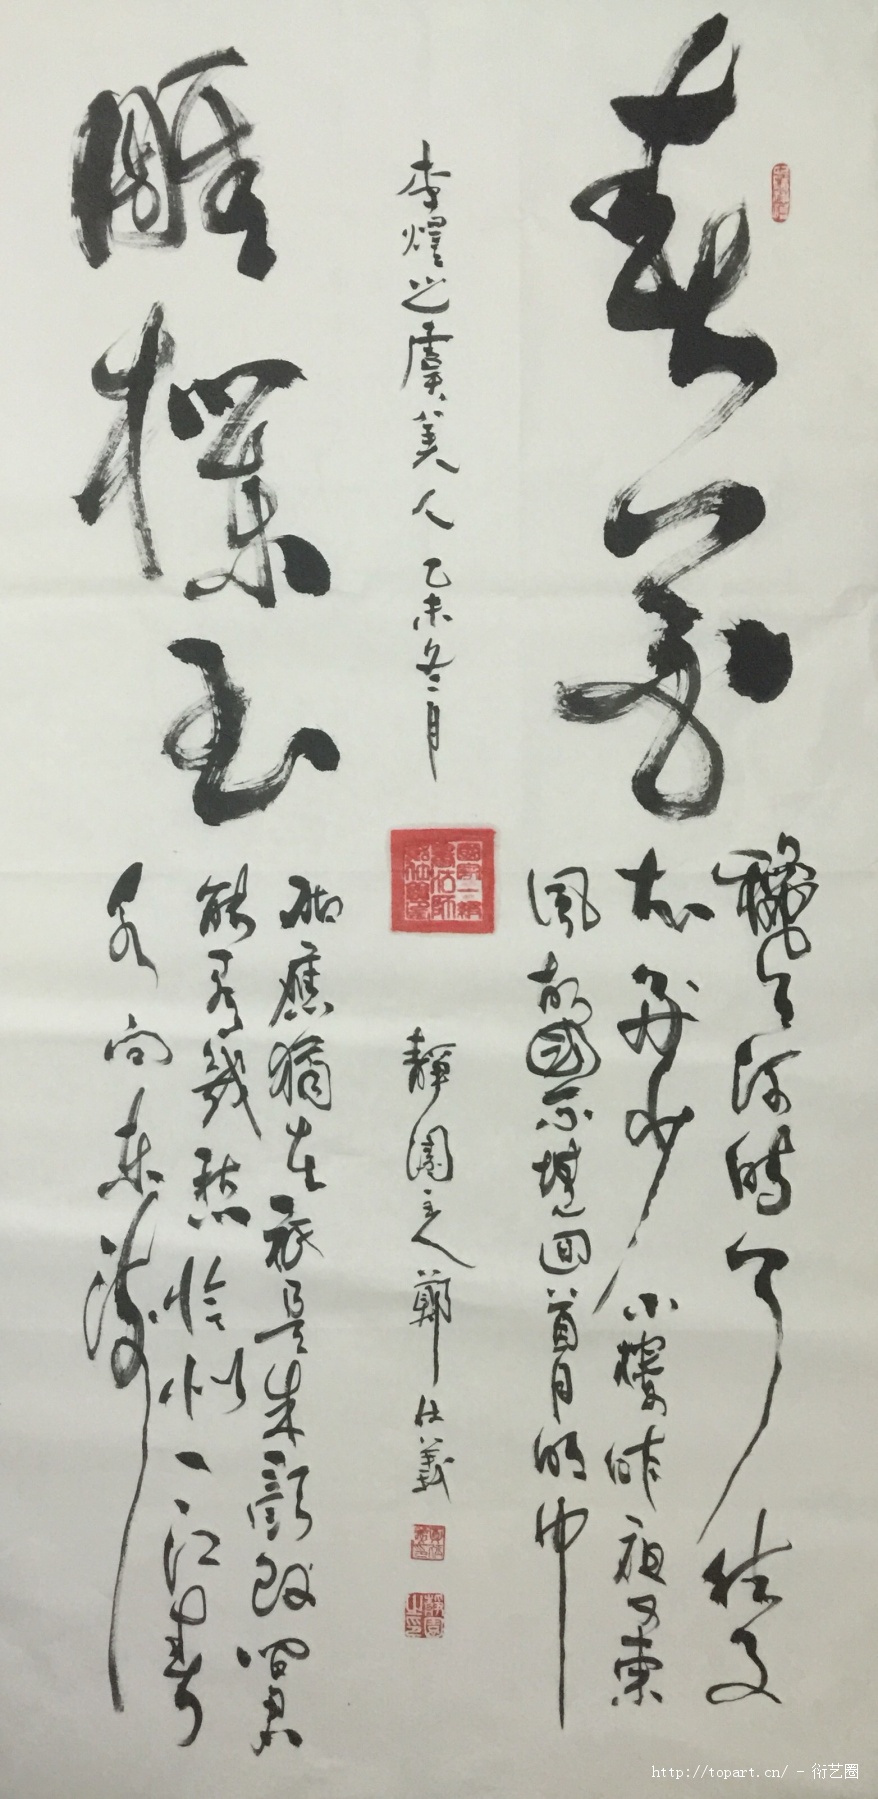 春花
秋月何時了 往事
知多少 小樓昨夜又東
風故國不堪回首月明中
李煜之虞美人 乙未冬月
靜園主人鄭仕義
雕欄玉
砌應猶在祇是朱顏改問君
能有幾愁恰似一江春
水向東流
http://topart.cn/ - 衍艺圈